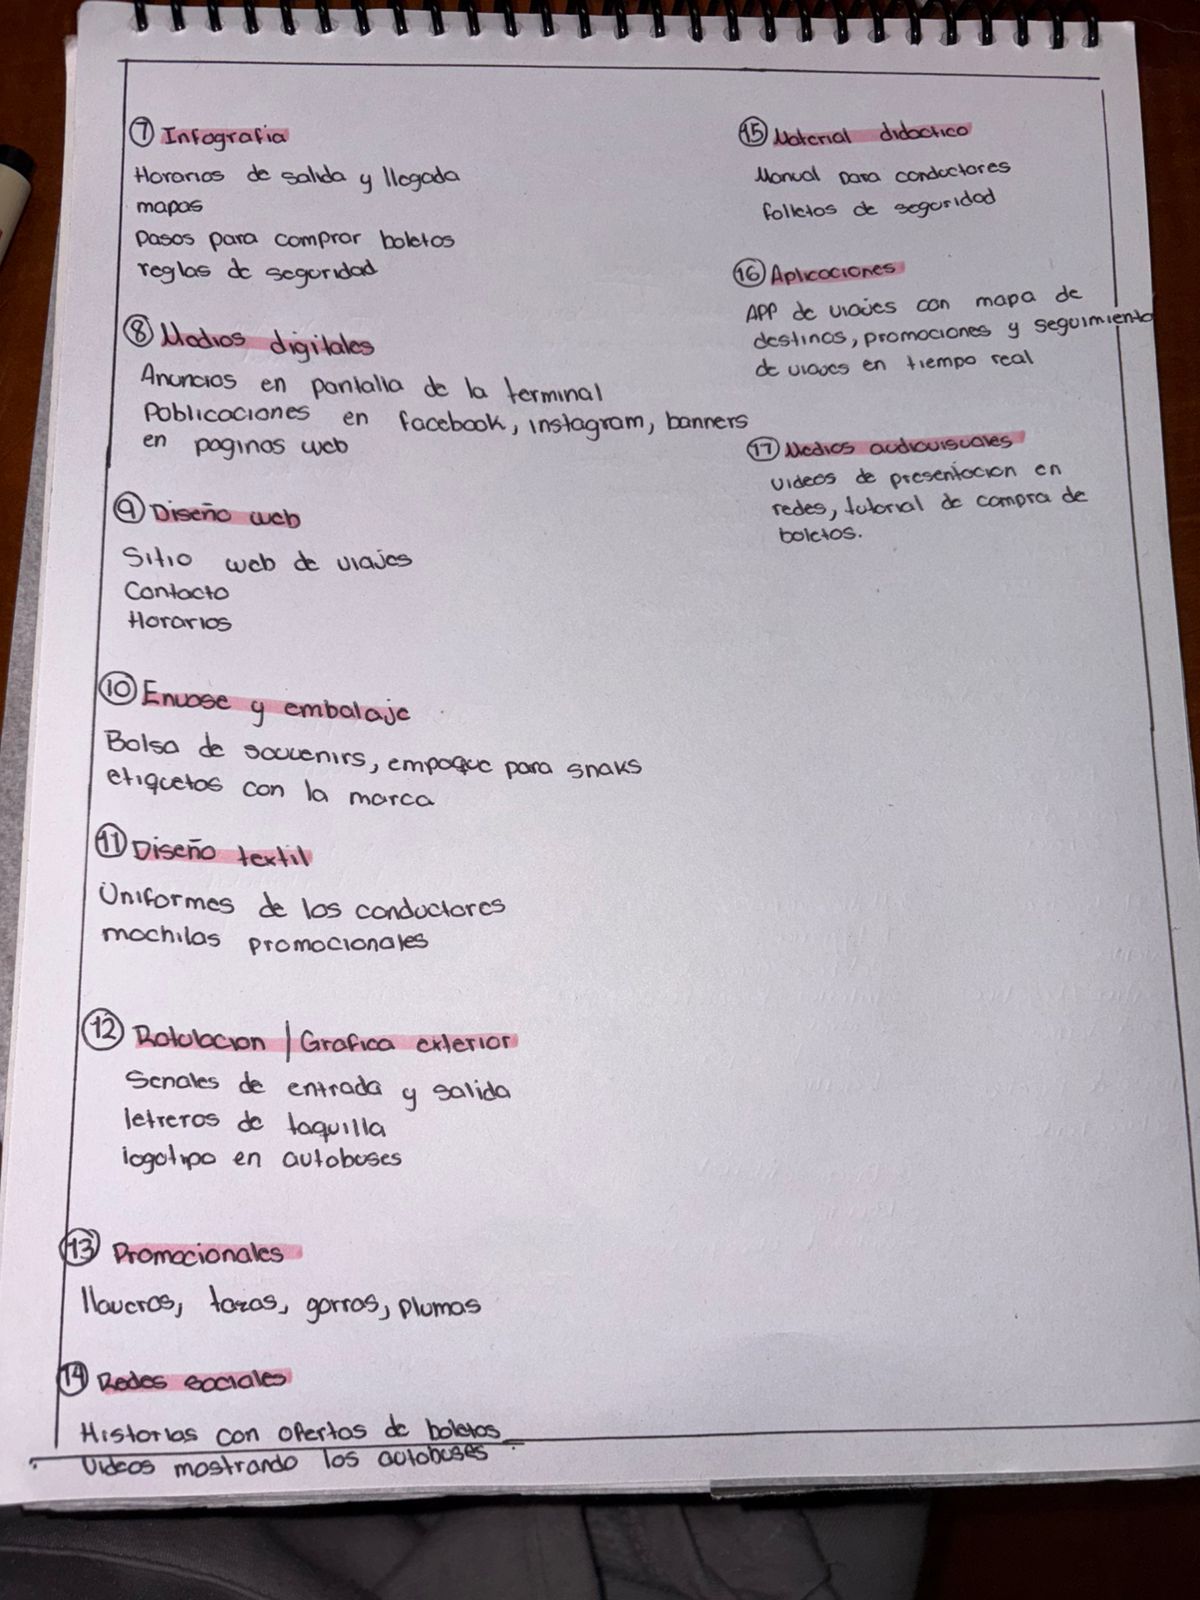 7 Infografia
Horarios de salida y llegada
mapas
Pasos para comprar boletos
reglas de seguridad
8 Medios digitales
Anuncios en pantalla de la terminal
Publicaciones en facebook, instagram, banners
en paginas web
9 Diseño web
Sitio web de viajes
Contacto
Horarios
10 Envase y embalaje
Bolsa de souvenirs, empaque para snaks
etiquetas con la marca
11 Diseño textil
Uniformes de los conductores
mochilas promocionales
12 Rotulacion | Grafica exterior
Senales de entrada y salida
letreros de taquilla
logotipo en autobuses
13 Promocionales
llaveros, tazas, gorros, plumas
14 Redes sociales
Historias con ofertas de boletos
Videos mostrando los autobuses
15 Material didactico
Manual para conductores
folletos de seguridad
16 Aplicaciones
APP de viajes con mapa de
destinos, promociones y seguimiento
de viajes en tiempo real
17 Medios audiovisuales
videos de presentacion en
redes, tutorial de compra de
boletos.